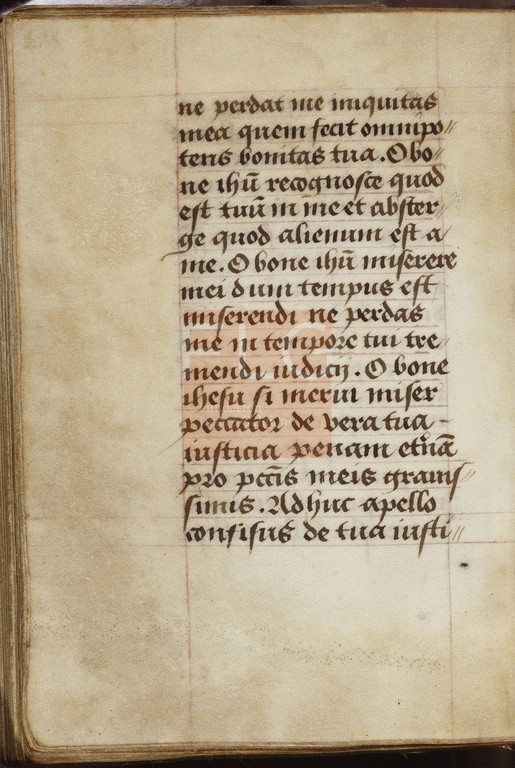 ne perdat me iniquitas
mea quem fecit omnipo//
tens bonitas tua. O bo//
ne ihũ recognosce quod
est tuũ in me et abster//
ge quod alienum est a/
me. O bone ihũ miserere
mei dum tempus est
miserendi ne perdas
me in tempore tui tre
mendi iudicij. O bone
ihesu si merui miser
peccator de vera tua -
iusticia penam etnã
pro pccĩs meis grauis//
simis. Adhuc apello
confisus de tua iusti//